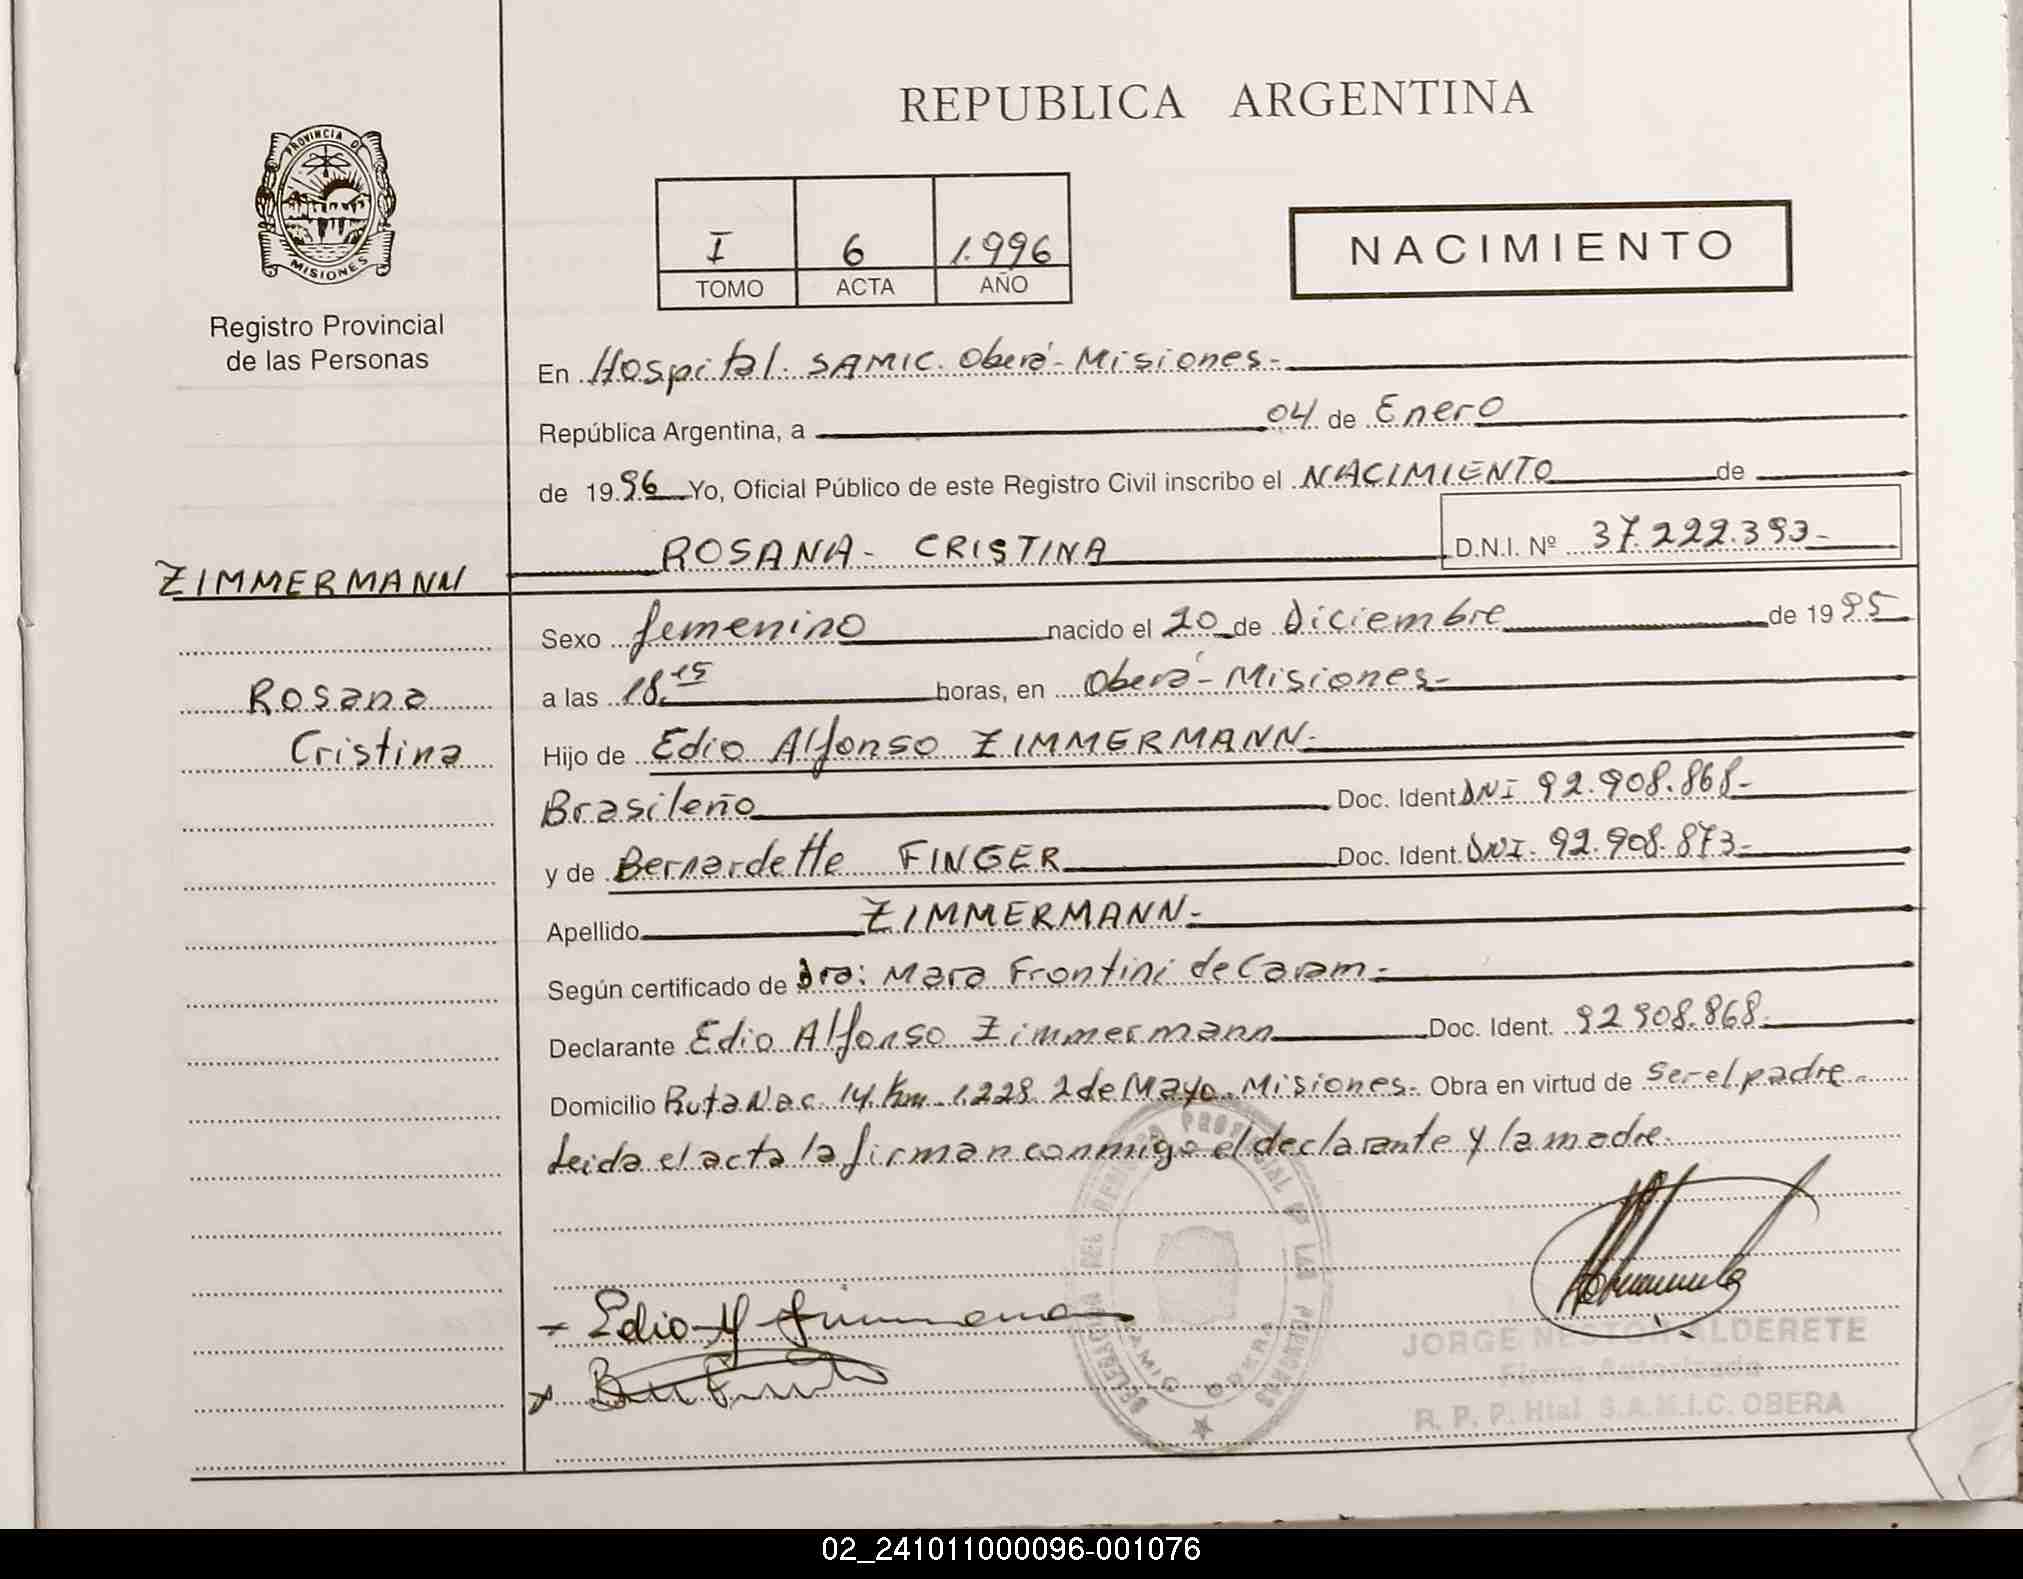 PROVINCIA DE
MISIONES
Registro Provincial
de las Personas
REPUBLICA ARGENTINA
I 6 1.996
TOMO ACTA AÑO
NACIMIENTO
En Hospital. SAMIC. Oberá - Misiones-
República Argentina, a 04 de Enero
de 1996 Yo, Oficial Público de este Registro Civil inscribo el NACIMIENTO de
ROSANA - CRISTINA D.N.I. Nº 37.222.393-
ZIMMERMANN
Rosana
Cristina
Sexo femenino nacido el 20 de Diciembre de 1995
a las 18.15 horas, en Oberá - Misiones-
Hijo de Edio Alfonso ZIMMERMANN-
Brasileño Doc. Ident DNI 92.908.868-
y de Bernardette FINGER Doc. Ident. DNI- 92.908.873-
Apellido ZIMMERMANN-
Según certificado de Dra: Mara Frontini de Caram-
Declarante Edio Alfonso Zimmermann Doc. Ident. 92908.868.
Domicilio Ruta Nac. 14. Km. 1.228 2 de Mayo- Misiones- Obra en virtud de ser el padre.
Leida el acta la firman conmigo el declarante y la madre.
Edio
JORGE NESTOR ALDERETE
Firma Autorizada
R. P. P. Htal S.A.M.I.C. OBERA
02_241011000096-001076